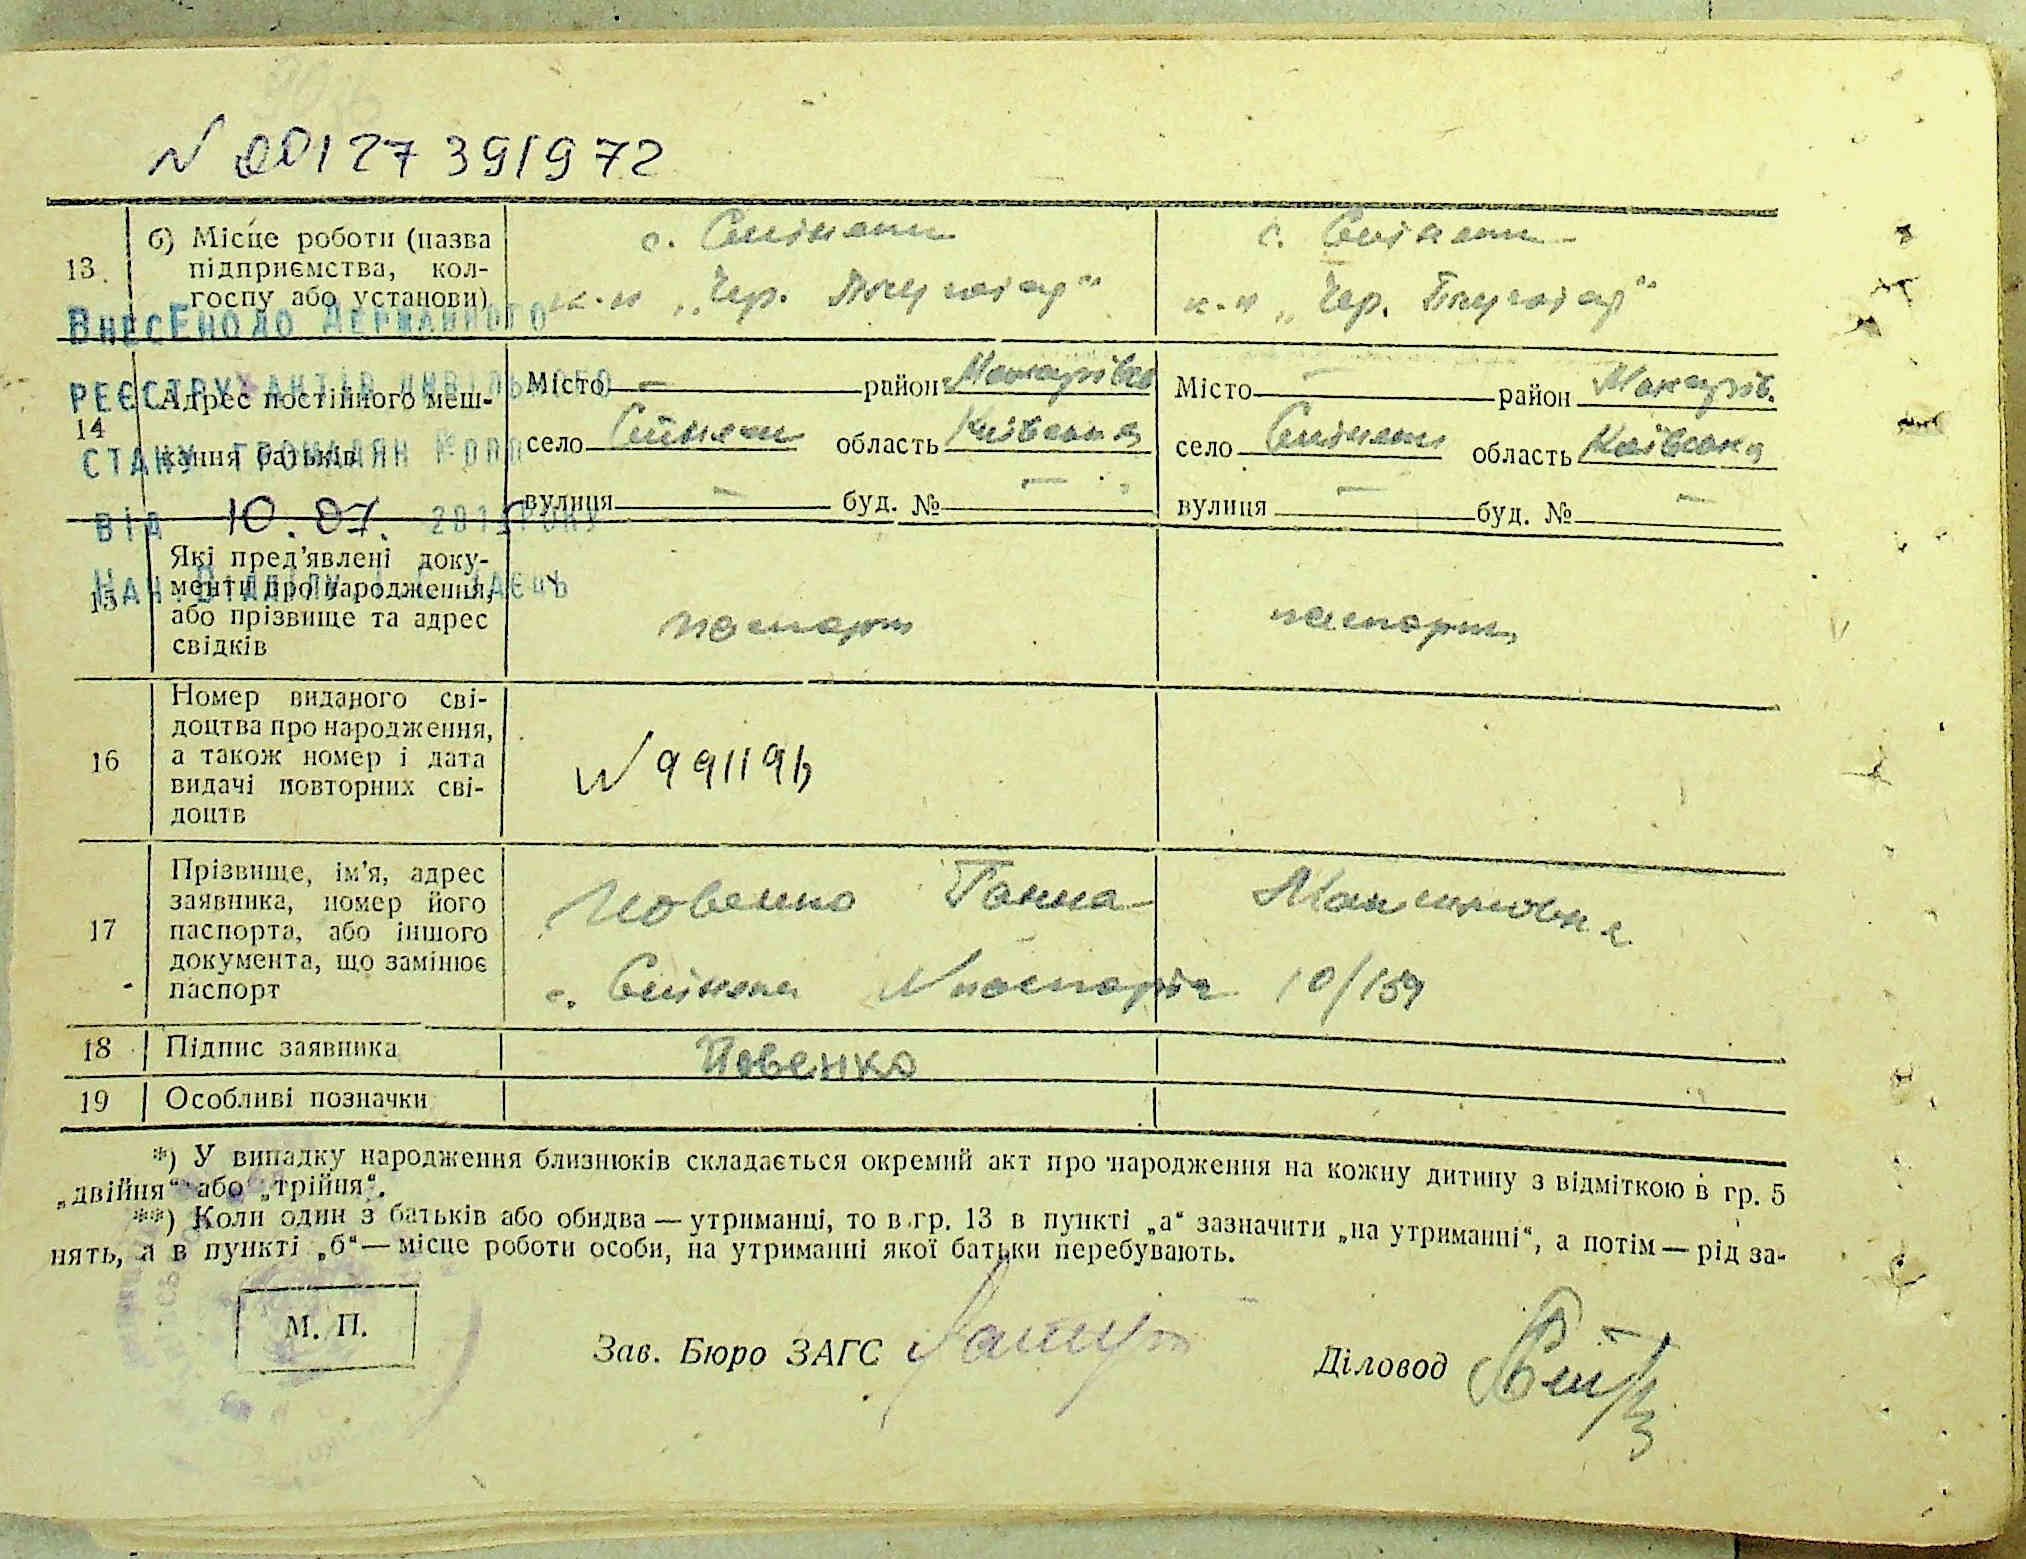 N 00127391972
13 б) Місце роботи (назва
підприємства, кол-
госпу або установи)
с.
с.
к-п „Чер.
к-п „Чер.
ВнесЕно до Державного
реєстру актів цивільного
стану громадян
від 10.07. 2015 року
14 Адрес постійного меш-
кання батьків
Місто — район Макарівск
село область Київська
вулиця — буд. № —
Місто — район Макарів.
село область Київська
вулиця — буд. № —
15 Які пред'явлені доку-
менти про народження,
або прізвище та адрес
свідків
паспорт
паспорт
16 Номер виданого сві-
доцтва про народження,
а також номер і дата
видачі повторних сві-
доцтв
N 991196
17 Прізвище, ім'я, адрес
заявника, номер його
паспорта, або іншого
документа, що замінює
паспорт
Йовенко Ганна
с. N паспорта 10/159
18 Підпис заявника
Йовенко
19 Особливі позначки
*) У випадку народження близнюків складається окремий акт про народження на кожну дитину з відміткою в гр. 5
„двійня“ або „трійня“.
**) Коли один з батьків або обидва — утриманці, то в гр. 13 в пункті „а“ зазначити „на утриманні“, а потім — рід за-
нять, а в пункті „б“ — місце роботи особи, на утриманні якої батьки перебувають.
М. П.
Зав. Бюро ЗАГС
Діловод